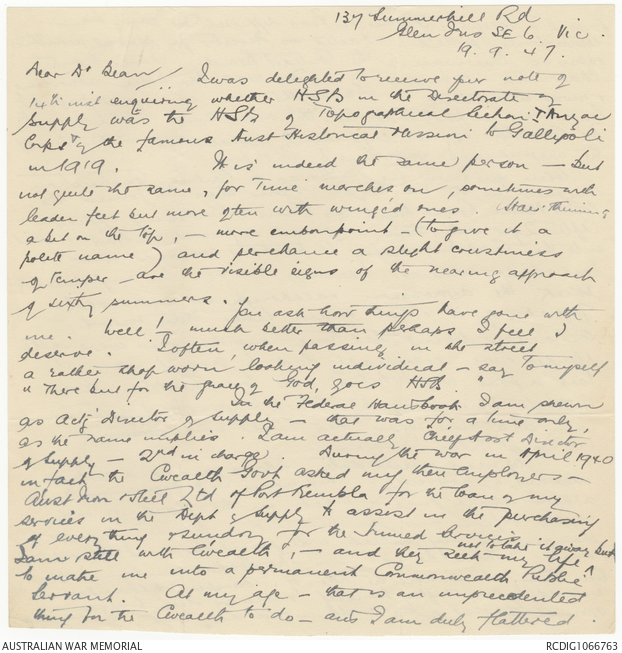 137 Summerhill Rd
Glen Iris SE 6. Vic.
19. 9. 47.
Dear Dr Bean/ I was delighted to receive your note of
14th inst enquiring whether HSB in the Directorate of
Supply was the HSB of Topographical Section 1st Anzac
Corps & of the famous Aust Historical Mission to Gallipoli
in 1919. It is indeed the same person - but
not quite the same, for Time marches on, sometimes with
leaden feet but more often with winged ones. Hair thinning
a bit on the top, - more embonpoint - (to give it a
polite name) and perchance a slight crustiness
of temper - are the visible signs of the nearing approach
of sixty summers. You ask how things have gone with
me. Well! - much better than perhaps I feel I
deserve. I often, when passing in the street
a rather shop worn looking individual - say to myself
"There but for the grace of God, goes HSB."
In the Federal Handbook I am shown
as Actg Director of Supply - that was for a time only,
as the name implies. I am actually Chief Asst Director
of Supply - 2nd in charge. During the war in April 1940
in fact the Cwealth Govt asked my then employers -
Aust Iron & Steel Ltd of Port Kembla for the loan of my
services in the Dept of Supply to assist in the purchasing
of everything & sundry for the Armed Services
not to take it away but
I am still with Cwealth, - and they seek my life ^
to make me into a permanent Commonwealth Public
Servant. At my age - that is an unprecedented
thing for the Cwealth to do - and I am duly flattered.
AUSTRALIAN WAR MEMORIAL
RCDIG1066763